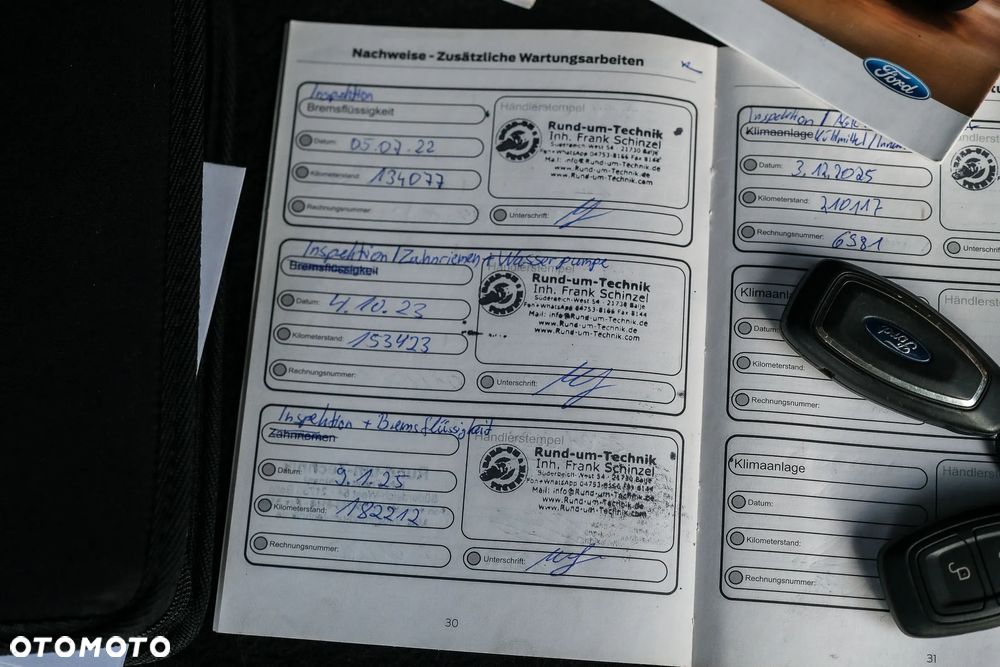 Nachweise - Zusätzliche Wartungsarbeiten
Inspektion
Bremsflüssigkeit
Datum: 05.07.22
Kilometerstand: 134077
Rechnungsnummer:
Händlerstempel
Rund-um-Technik
Inh. Frank Schinzel
Süderreich-West 54 - 21730 Balje
Fon+WhatsApp 04753-8166 Fax 8144
Mail: info@Rund-um-Technik.de
www.Rund-um-Technik.de
www.Rund-um-Technik.com
Unterschrift:
Inspektion/Zahnriemen + Wasserpumpe
Bremsflüssigkeit
Datum: 4.10.23
Kilometerstand: 153423
Rechnungsnummer:
Händlerstempel
Rund-um-Technik
Inh. Frank Schinzel
Süderreich-West 54 - 21730 Balje
Fon+WhatsApp 04753-8166 Fax 8144
Mail: info@Rund-um-Technik.de
www.Rund-um-Technik.de
www.Rund-um-Technik.com
Unterschrift:
Inspektion + Bremsflüssigkeit
Zahnriemen
Datum: 9.1.25
Kilometerstand: 182212
Rechnungsnummer:
Händlerstempel
Rund-um-Technik
Inh. Frank Schinzel
Süderreich-West 54 - 21730 Balje
Fon+WhatsApp 04753-8166 Fax 8144
Mail: info@Rund-um-Technik.de
www.Rund-um-Technik.de
www.Rund-um-Technik.com
Unterschrift:
30
Ford
Inspektion /
Klimaanlage Kühlmittel/
Datum: 3.12.2025
Kilometerstand: 210117
Rechnungsnummer: 6981
Unterschrift
Klimaanl
Händlerst
Datum:
Kilometerstand:
Rechnungsnummer:
Ford
Klimaanlage
Händlerst
Datum:
Kilometerstand:
Rechnungsnummer:
31
OTOMOTO